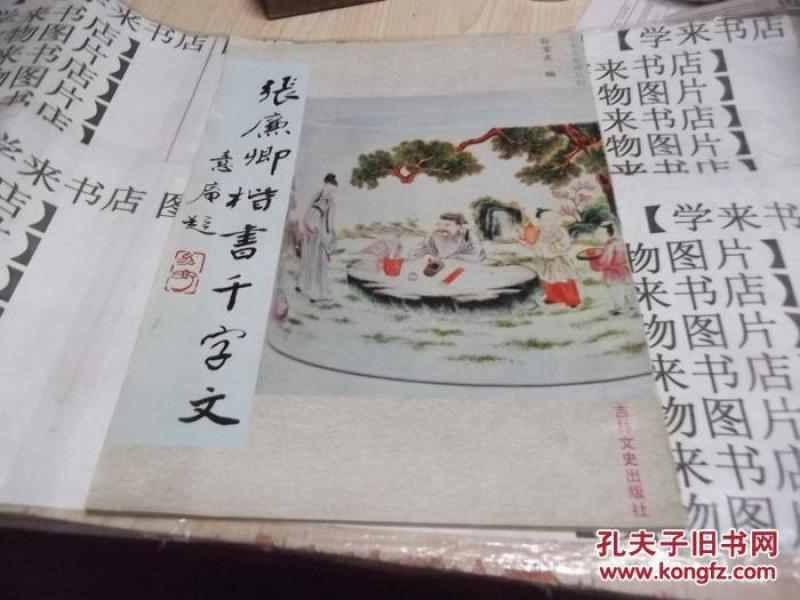 張廉卿楷書千字文
意庵題
孙宝文 编
吉林文史出版社
学来书店
来书店
物图片】
来书店】
学来书店 图
【学来书店
来书店】
物图片】
来书店】
物图片】
来书店】
【学来书
物图片】
来书店】
物图片】
来书店】
物图片
来书店
物图片
孔夫子旧书网
www.kongfz.com